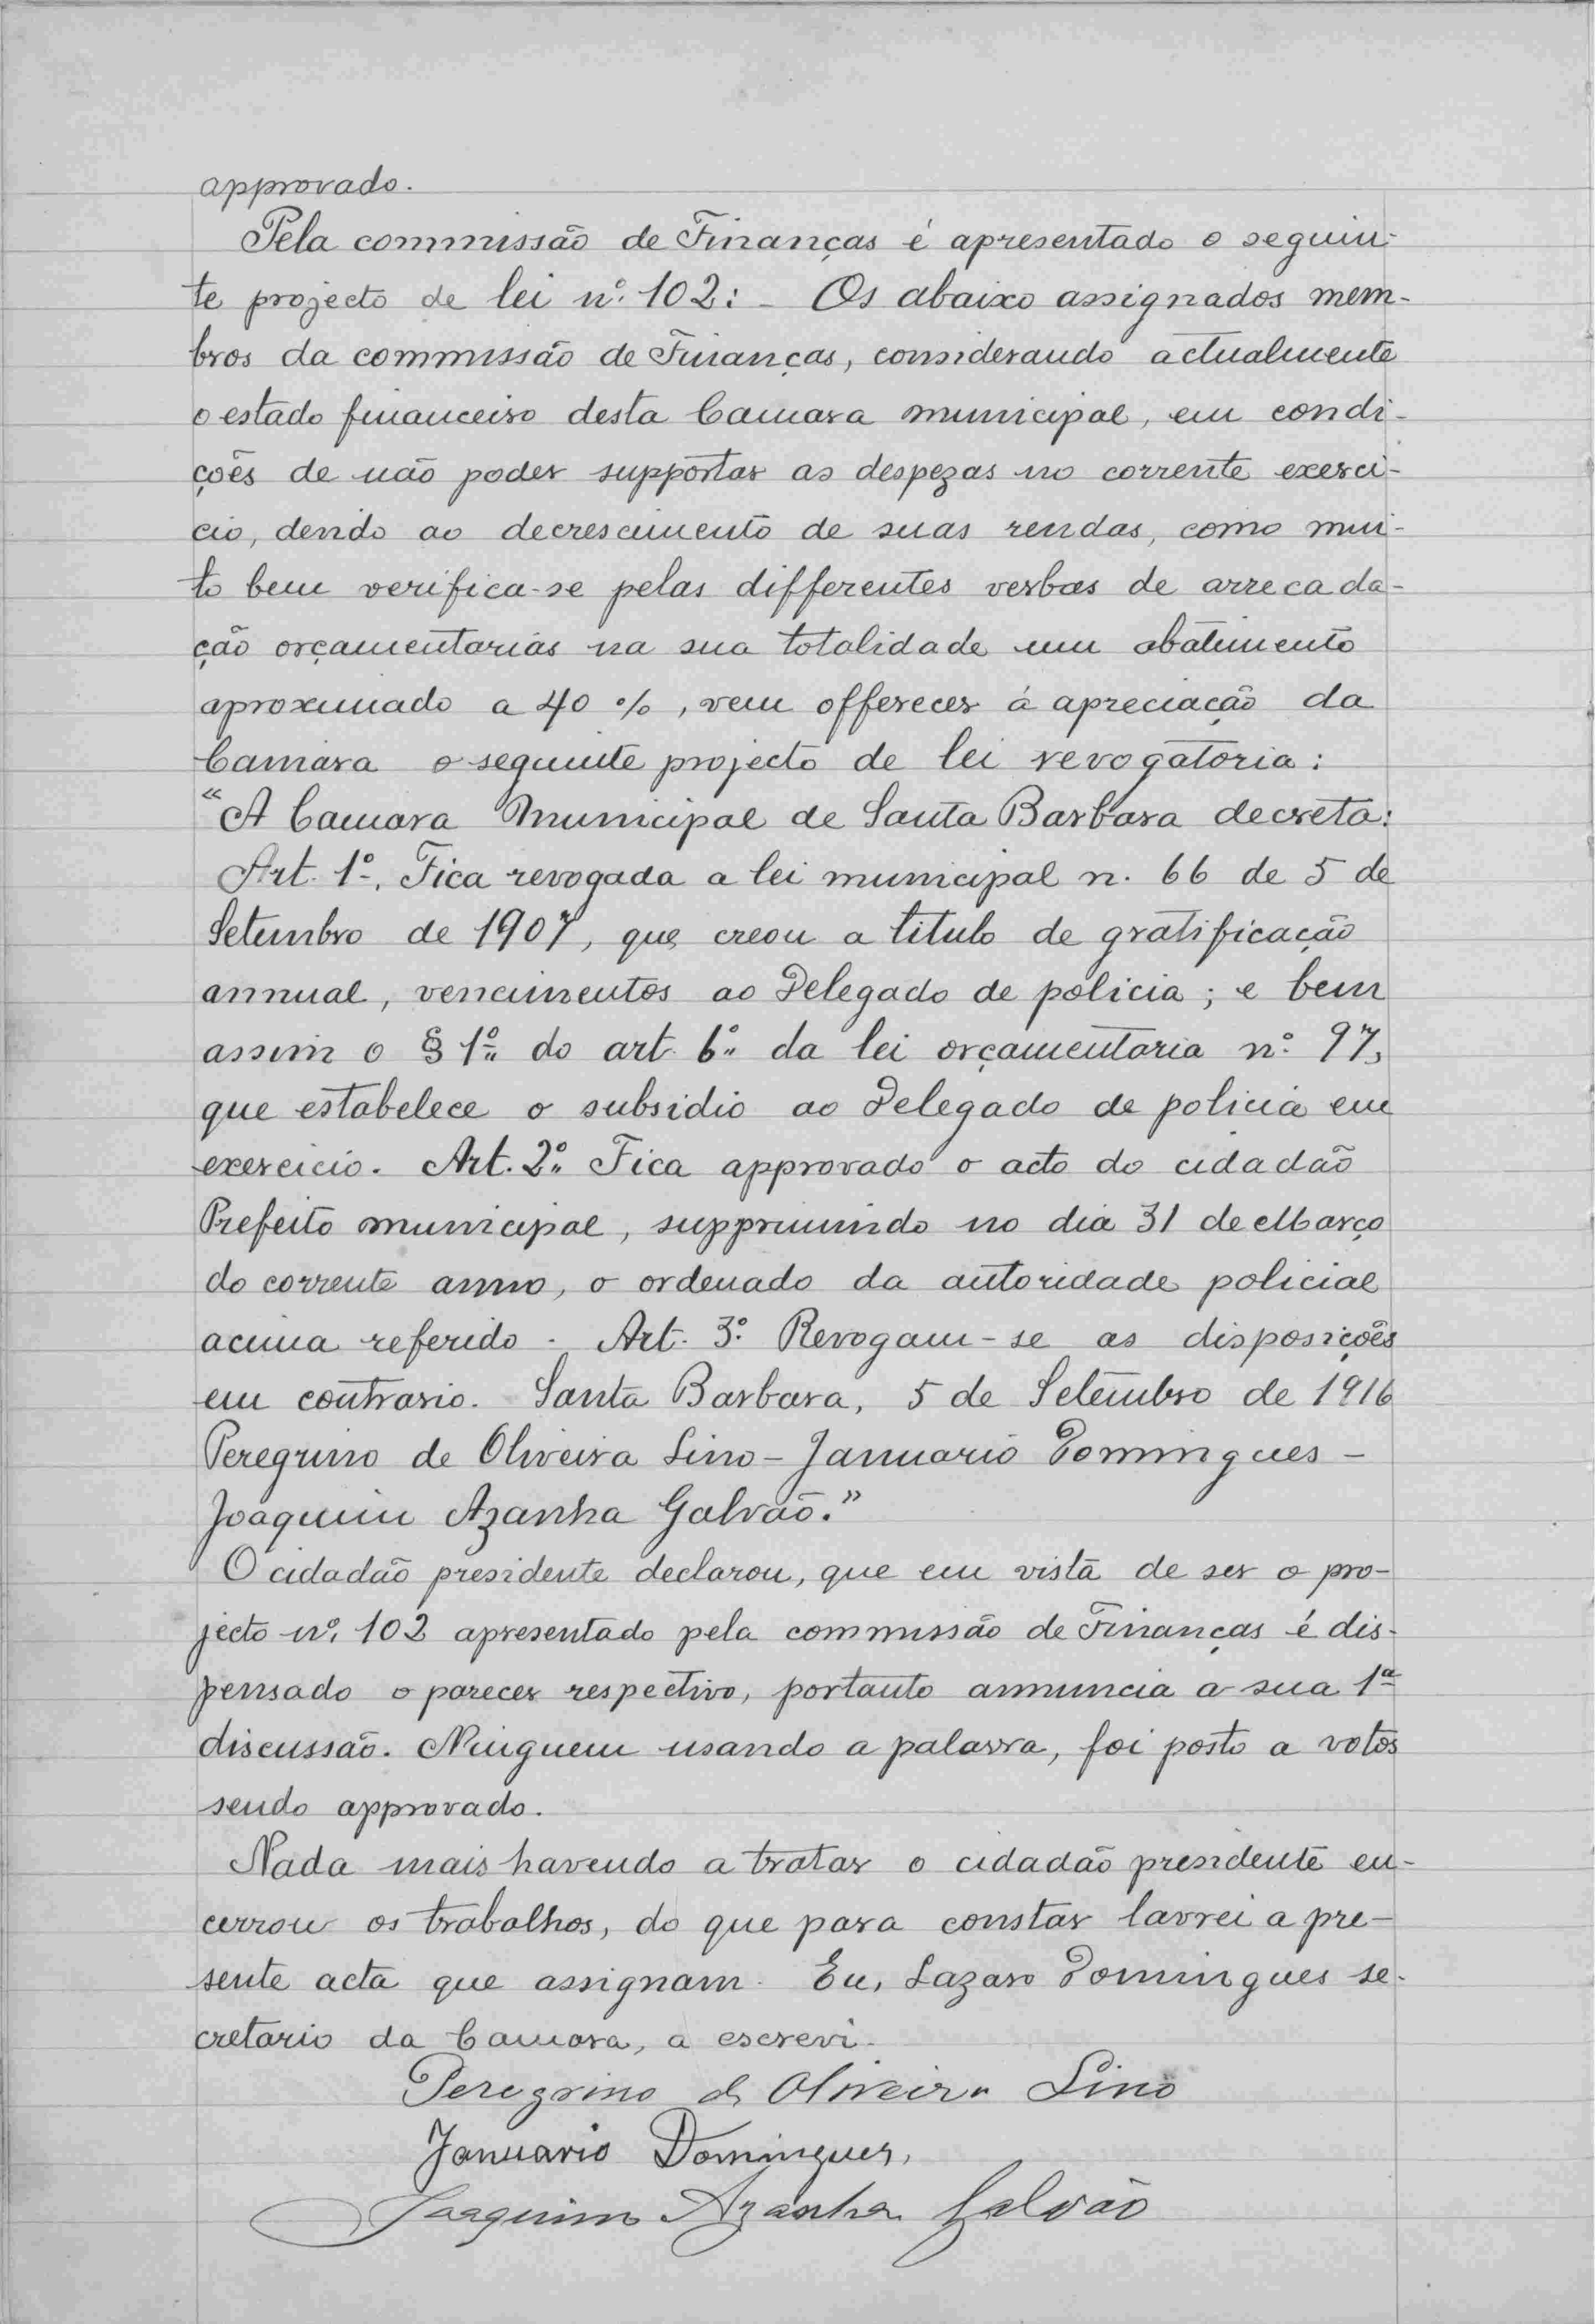 approvado.
Pela commissão de Finanças é apresentado o seguin-
te projecto de lei nº. 102: - Os abaixo assignados mem-
bros da commissão de Finanças, considerando actualmente
o estado financeiro desta Camara municipal, em condi-
ções de não poder supportar as despezas no corrente exerci-
cio, devido ao decrescimento de suas rendas, como mui-
to bem verifica-se pelas differentes verbas de arrecada-
ção orçamentarias na sua totalidade um abatimento
aproximado a 40 %, vem offerecer á apreciação da
Camara o seguinte projecto de lei revogatoria:
"A Camara Municipal de Santa Barbara decreta:
Art. 1º. Fica revogada a lei municipal n. 66 de 5 de
Setembro de 1907, que creou a titulo de gratificação
annual, vencimentos ao Delegado de policia; e bem
assim o § 1º do art. 6º da lei orçamentaria nº 97,
que estabelece o subsidio ao Delegado de policia em
exercicio. Art. 2º Fica approvado o acto do cidadão
Prefeito municipal, supprimindo no dia 31 de Março
do corrente anno, o ordenado da autoridade policial
acima referido. Art. 3º Revogam-se as disposições
em contrario. Santa Barbara, 5 de Setembro de 1916
Peregrino de Oliveira Lino - Januario Domingues -
Joaquim Azanha Galvão."
O cidadão presidente declarou, que em vista de ser o pro-
jecto nº. 102 apresentado pela commissão de Finanças é dis-
pensado o parecer respectivo, portanto annuncia a sua 1ª
discussão. Ninguem usando a palavra, foi posto a votos
sendo approvado.
Nada mais havendo a tratar o cidadão presidente en-
cerrou os trabalhos, do que para constar lavrei a pre-
sente acta que assignam. Eu, Lazaro Domingues se-
cretario da Camara, a escrevi.
Peregrino de Oliveira Lino
Januario Domingues,
Joaquim Azanha Galvão